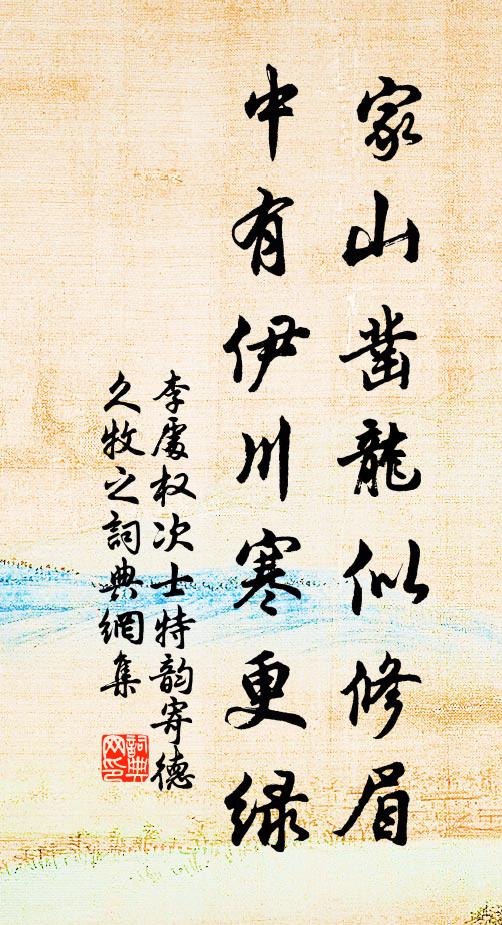 家山凿龍似修眉
中有伊川寒更緑
李處权次士特韵寄德
久牧之詞典網集
詞典网印